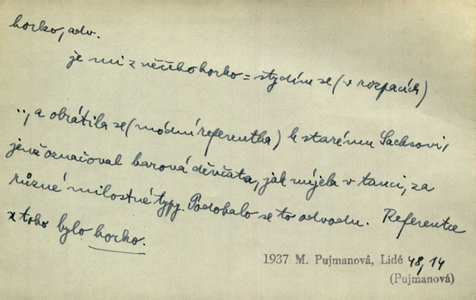 horko, adv.
je mi z něčeho horko = stydím se (v rozpacích)
.., a obrátila se (módní referentka) k starému Sacksovi,
jenž označoval barová děvčata, jak míjela v tanci, za
různé milostné typy. Podobalo se to odvodu. Referentce
z toho bylo horko.
1937 M. Pujmanová, Lidé 48, 14
(Pujmanová)